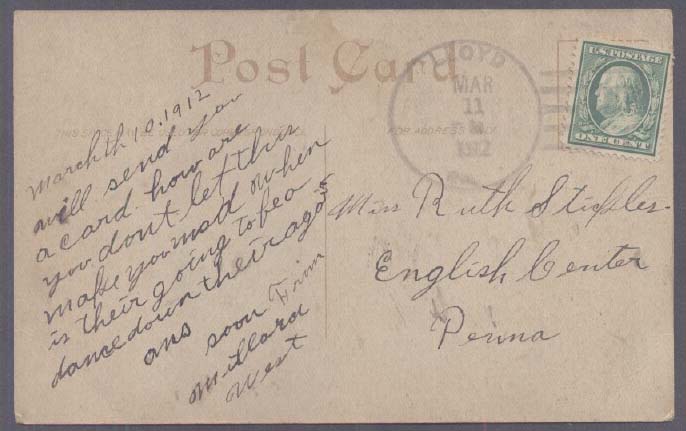 Post Card
THIS SPACE MAY BE USED FOR CORRESPONDENCE
FOR ADDRESS ONLY
LLOYD
MAR
11
1912
U.S. POSTAGE
ONE CENT
March th 10. 1912
will send you
a card how are
you dont let this
make you mad when
is their going to be a
dance down their agan
ans soon Frim
Millard
West
Miss Ruth
English Center
Penna